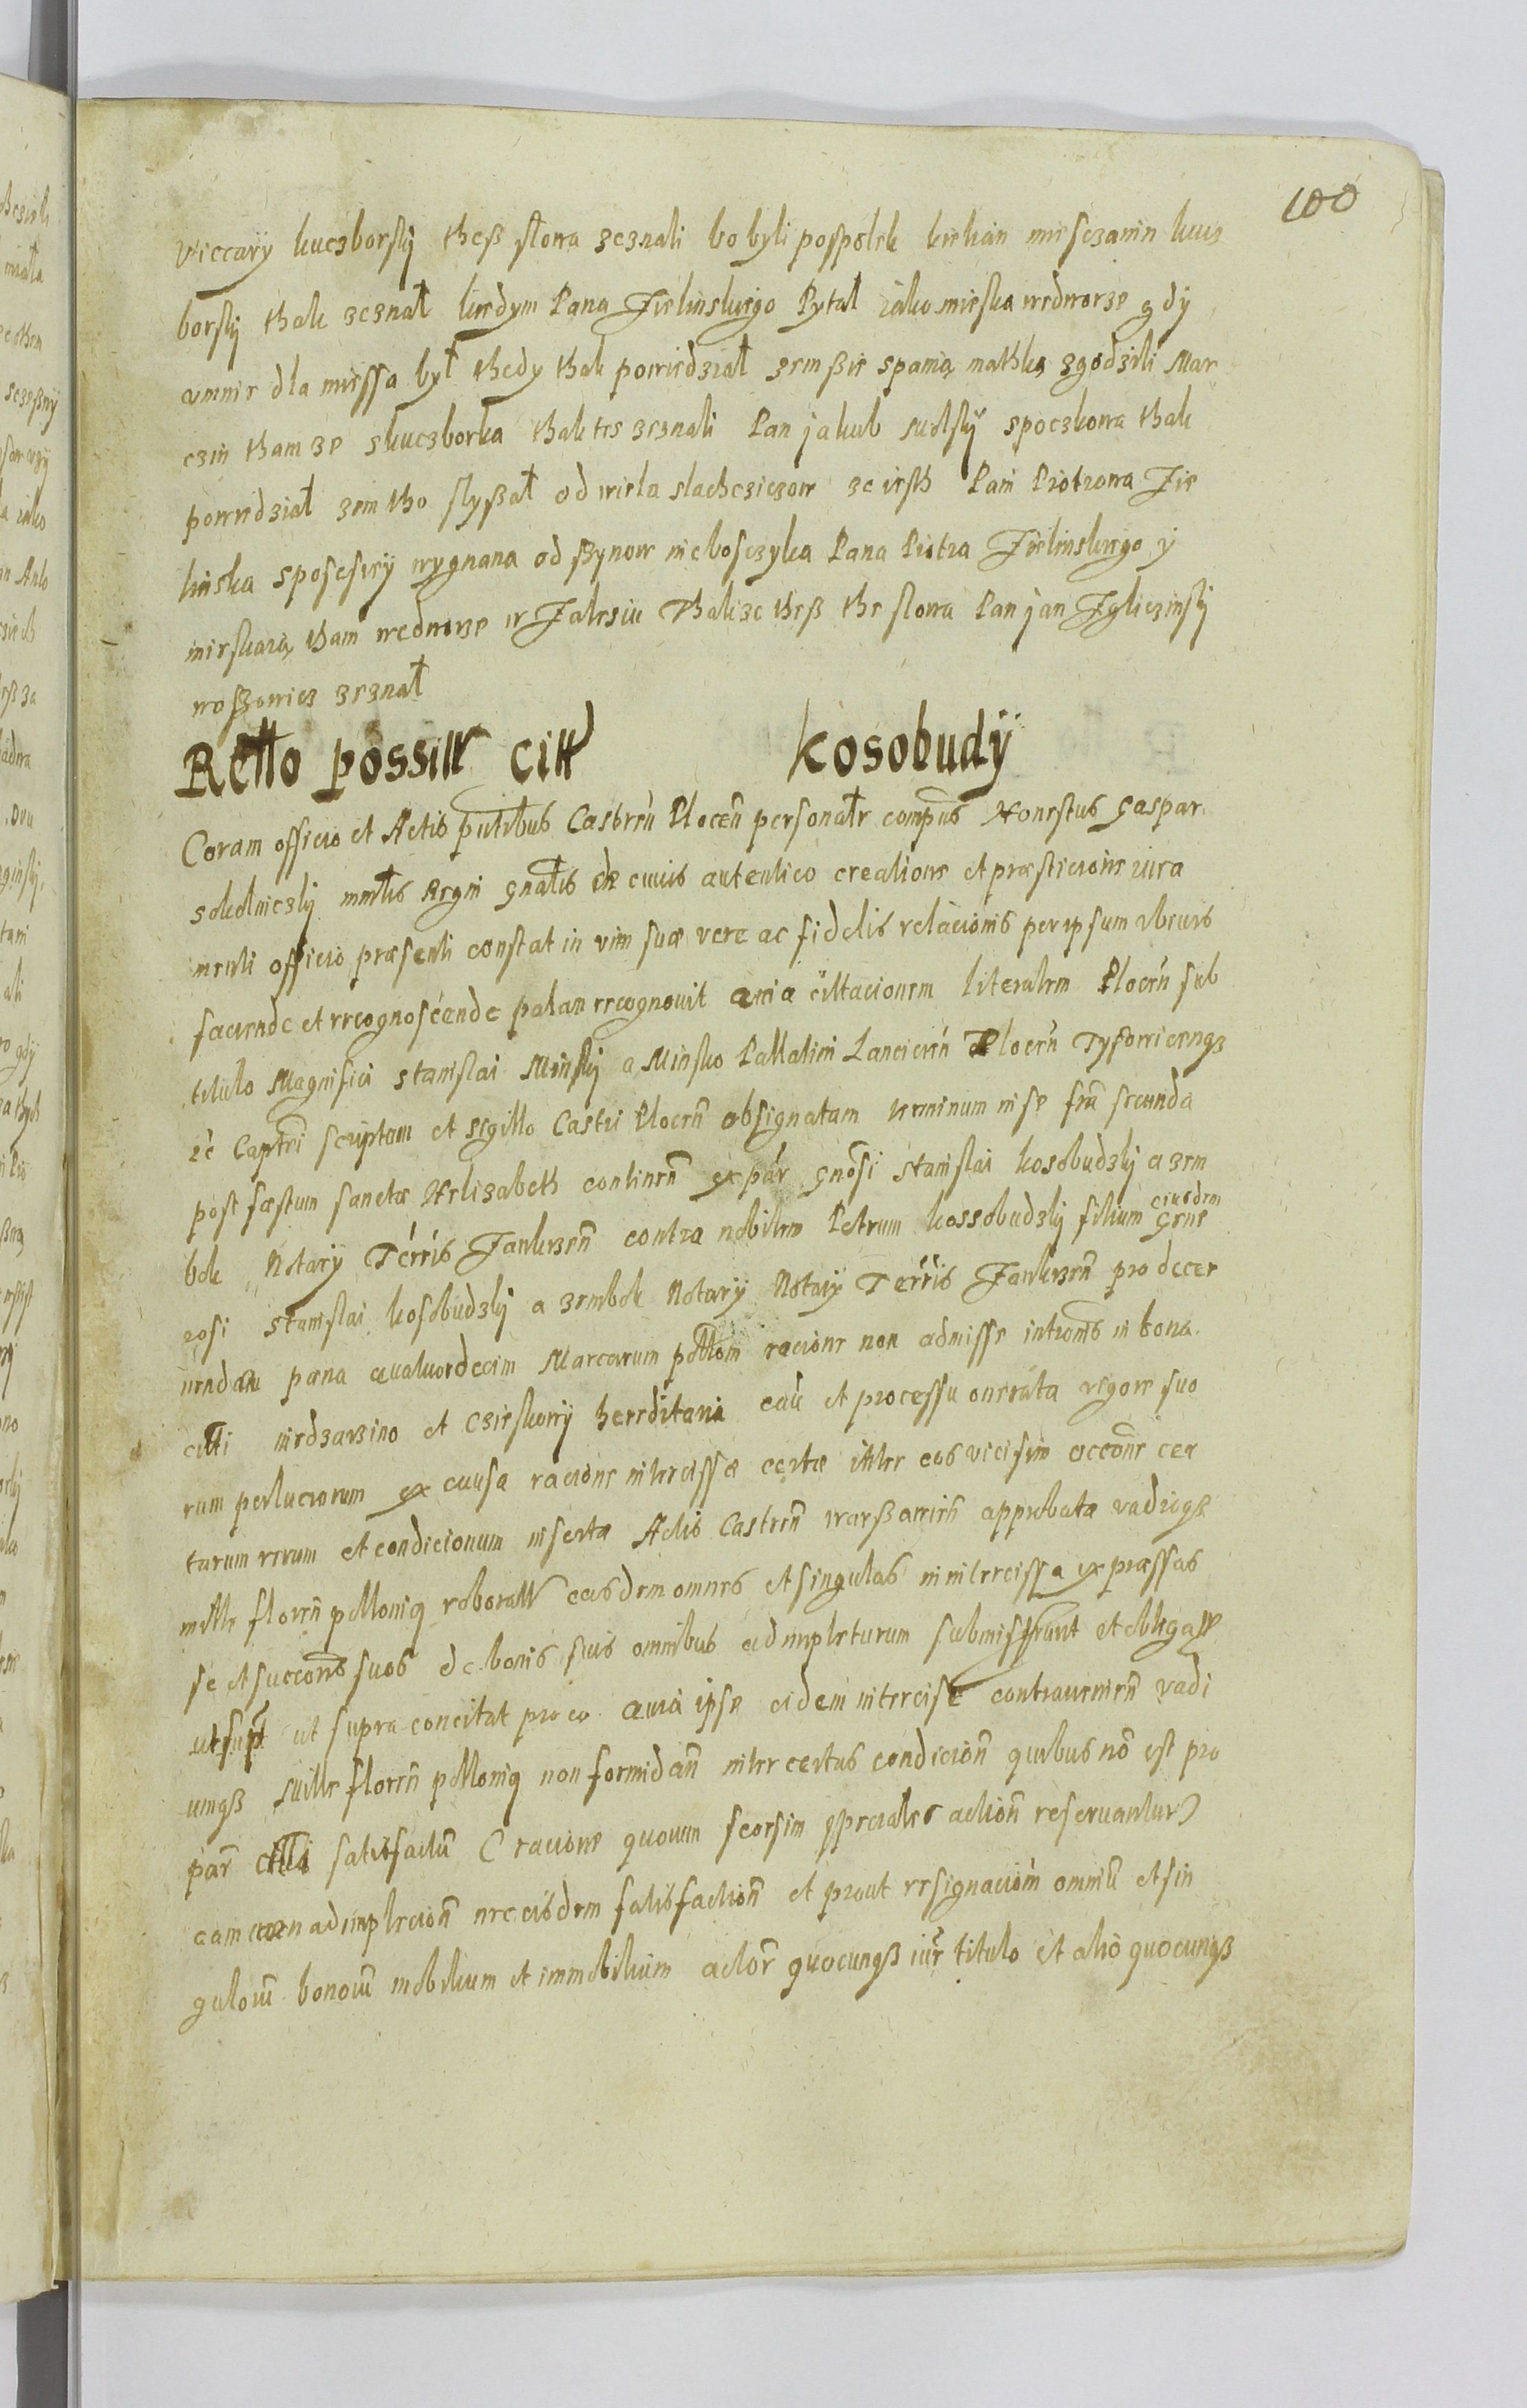 100
viccarÿ kuczborskÿ theß słowa zeznali bo byli pospolek kielian miesczanin kucz
borskÿ thak zeznał kiedym Pana Jielinskiego Pytał iako mieska wedworze gdÿ
vmnie dla miessa był thedy thak powiedział zem ßie spanią mathką zgodzieli Mar
czin tham ze skuczborka thak tes zeznali Pan jakub sudskÿ spoczkowa thak
powiedział zem tho slyßał od wiela slachcziczow ze iesth Pani Piotrowa Jie
linska sposesiey wygnana od ßynow nieboszczyka Pana Piotra Jielinskiego y
mieskaią tham wedworze w Jalesiu Thakze theß the słowa Pan jan Jgliczinskÿ
woßowicz zeznał
Retto possitt citt kosobudÿ
Coram officio et Actis pntibus Castren Plocen personatr compns Honestus Gaspar
sokolniczkÿ mntlis Regni gnatis de cuius autentico creatione et præsticione iura
menti officio præsenti constat in vim suæ vere ac fidelis relacionis per ipsum vbiuis
faciende et recognoscende palam recognouit quia cittacionem literalem Plocen sub
titulo Magnifici stanislai Minskÿ a Minsko Pallatini Lancicien Plocen Tyssowiecnqz
zc Captei scriptam et sigillo Castri Plocen obsignatam terminum in se fria secunda
post fæstum sanctæ Helizabeth continen ex par gnosi stanislai kosobudzkÿ a zem
bok Notarÿ Terris Jawkrzen contra nobilem Petrum kossobudzkÿ filium eiusdem Gene
rosi stanislai kosobudzkÿ a zembok Notarÿ Notarÿ Terris Jawkrzen pro decer
nendam pæna quatuordecim Marcarum pottom racione non admisse intromis in bona
citti niedzarzino et Cziskowÿ hereditaria eau et processu onerata vigore suo
rum perlucrorum ex causa racione intercissæ certæ inter eos vicissim occone cer
tarum rerum et condicionum inserta Actis Castren warßawien approbata vadioqz
mille floren pottoniq roboratt easdem omnes et singulas in intercissa expræssas
se et succoris suos de bonis suis omnibus adimpleturum submisserunt et obligasse
ut supt ut supra concitat pro eo quia ipse eidem intercise contrauenien vadi
umqz Mille floren pottoniq non formidan inter certas condicion quibus no est pro
par citti satisfactu (racione quorum seorsim specialis action reseruantur)
eam adimplecion nec eisdem satisfaction et prout resignaciom omniu et sin
gulorū bonorū mobilium et immobilium actor quocunqz iure titulo et alio quocunqz